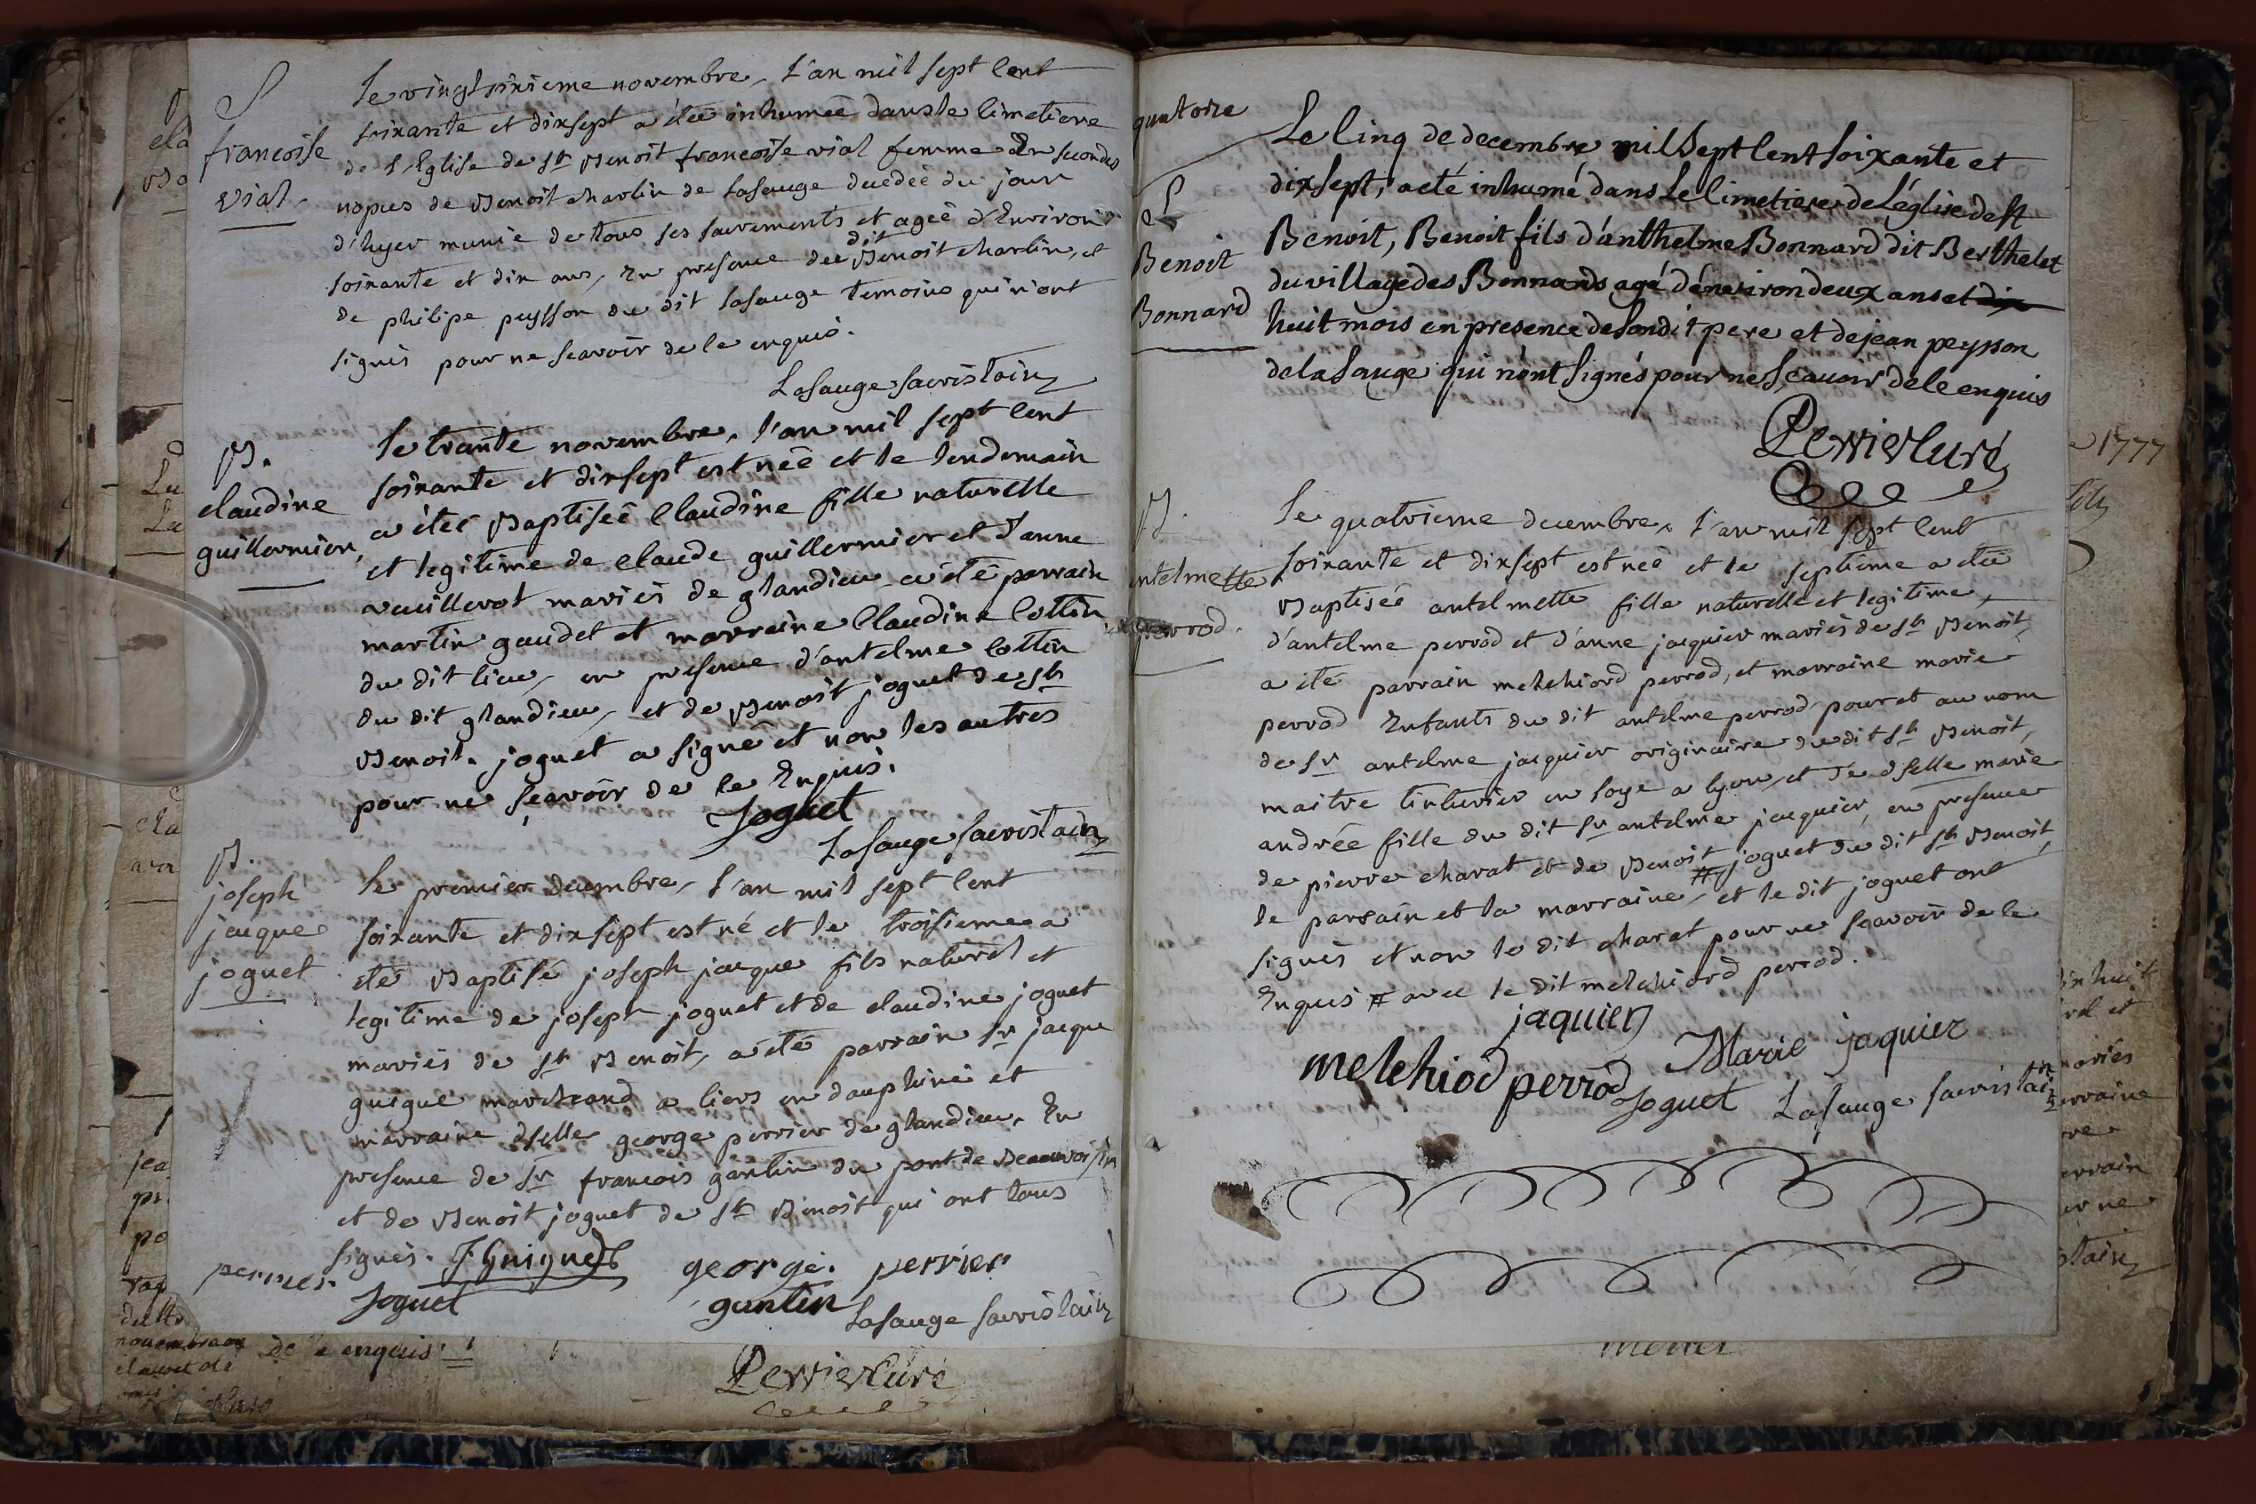 S
francoise
vial
Le vingtsixieme novembre, L'an mil sept cent
soixante et dixsept a étée inhumeé dans le cimetiere
de L'Eglise de St Benoit francoise vial femme En secondes
nopces de Benoit charlin de Lasauge decedeé du jour
d'hyer munie de tous ses sacrements et ageé d'Environ
soixante et dix ans, En presence dee dit Benoit charlin, et
de philipe peysson du dit Lasauge temoins qui n'ont
signés pour ne scavoir de le enquis.
Lasauge sacristain
B.
claudine
guillermier,
Le trante novembre, L'an mil sept cent
soixante et dixsept est neé et le lendemain
a éteé Baptiseé Claudine fille naturelle
et legitime de claude guillermier et d'anne
vuillerot mariés de glandieu a été parrain
martin gaudet et marraine Claudine Cottin
du dit lieu, en presence d'antelme Cottin
du dit glandieu, et de Benoit joguet de St
Benoit. joguet a signé et non les autres
pour ne sçavoir de le Enquis.
Joguet
Lasauge sacristain
B.
joseph
jacque
joguet
Le premier decembre, L'an mil sept cent
soixante et dixsept est né et le troisieme a
eté Baptisé joseph jacque fils naturel et
legitime de joseph joguet et de claudine joguet
mariés de St Benoit, a été parrain Sr jacque
guigue marchand a liers en dauphiné et
marraine dselle george perrier de glandieu, En
presence de Sr francois gantin du pont de Beauvoisin
et de Benoit joguet de St Benoit qui ont tous
signés. J Guigue
george perrier
Joguet
gantin
Lasauge sacristain
De le enquis
Perrier Curé
quatorze
S
Benoit
Bonnard
Le Cinq de decembre mil Sept Cent soixante et
dixsept, a eté inhumé dans Le Cimetiere de L'église de St
Benoit, Benoit fils d'anthelme Bonnard dit Berthelet
du village des Bonnards agé d'énviron deux ans et dix
huit mois en presence de Son dit pere et de jean peysson
de la Sauge qui n'ont Signés pour ne Scavoir de le enquis
Perrier Curé
B.
antelmette
perrod.
Le quatrieme decembre, L'an mil sept cent
soixante et dixsept est neé et le septieme a eteé
Baptiseé antelmette fille naturelle et legitime,
d'antelme perrod et d'anne jacquier mariés de St Benoit,
a été parrain melchiord perrod, et marraine marie
perrod Enfants du dit antelme perrod pour et au nom
de Sr antelme jacquier originaire du dit St Benoit,
maitre tinturier en soye a lyon, et de dselle marie
andrée fille du dit Sr antelme jacquier, en presence
de pierre charat et de Benoit joguet du dit St Benoit,
le parrain et la marraine # et le dit joguet ont
signés et non le dit charat pour ne scavoir de le
Enquis # avec le dit melchiord perrod.
jaquier
melchiod perrod
Marie jaquier
Joguet
Lasauge sacristain
1777